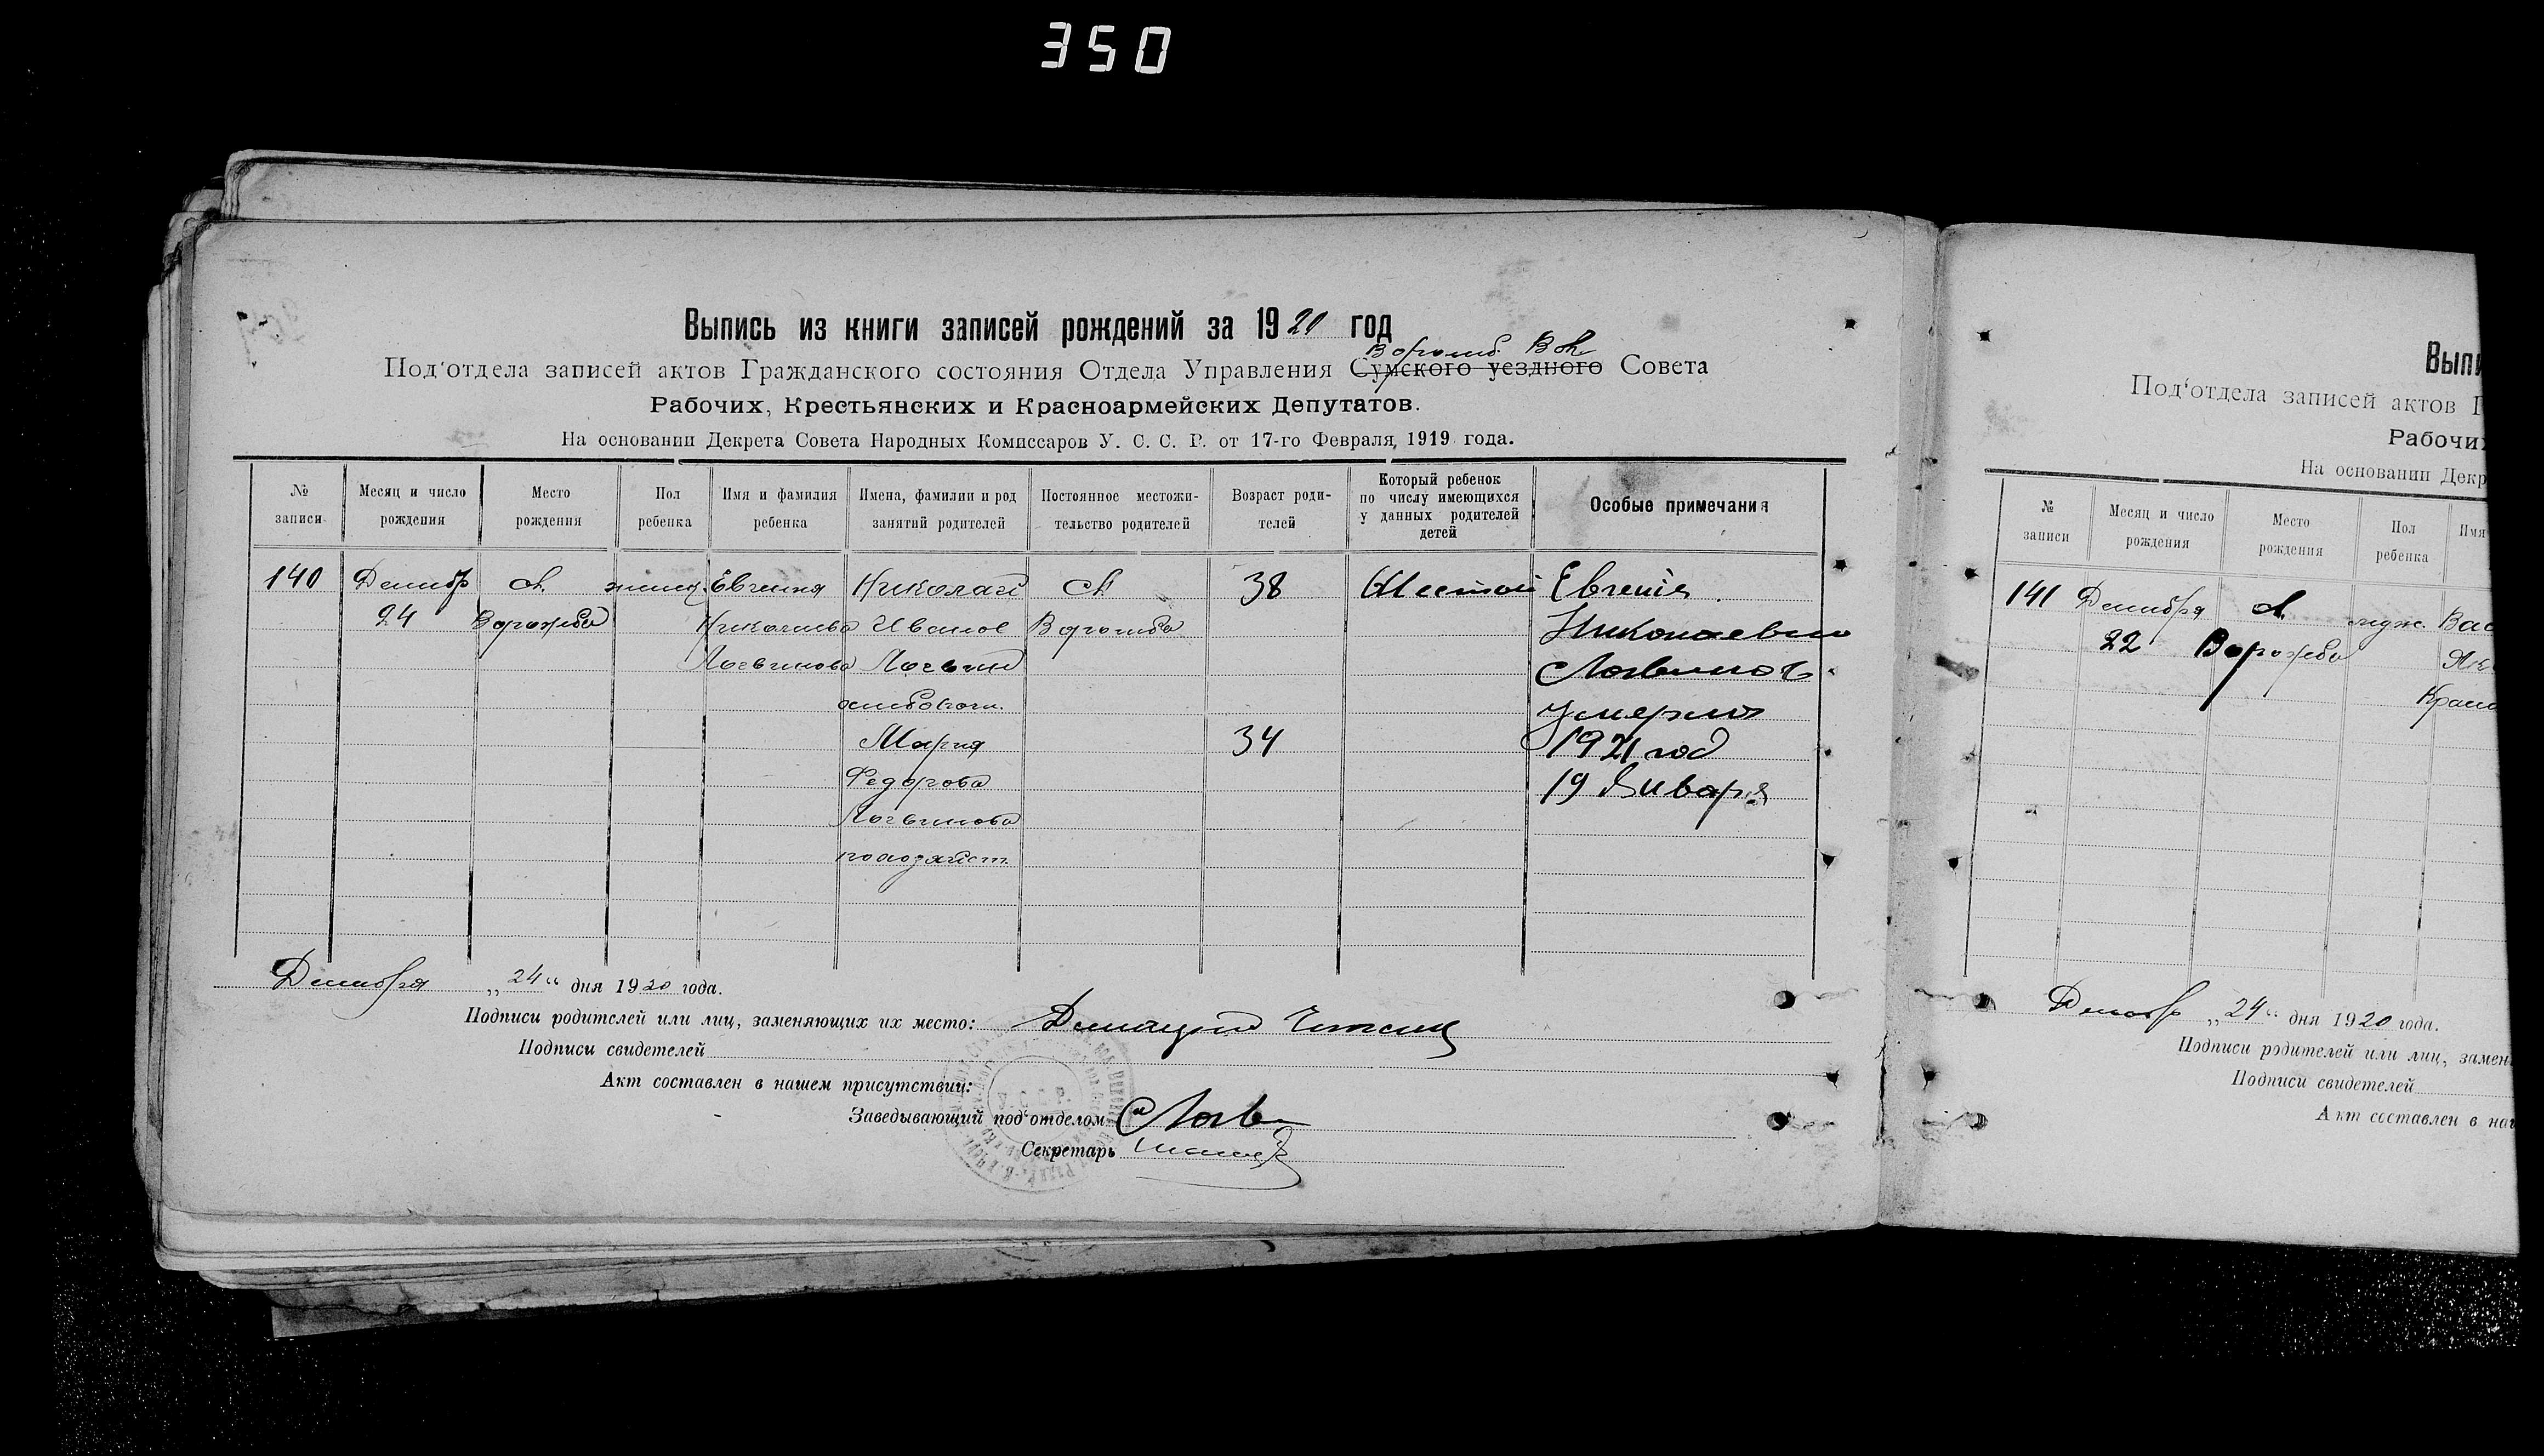 350
Выпись из книги записей рождений за 1920 год
Ворожб. Вол
Под'отдела записей актов Гражданского состояния Отдела Управления Сумского уездного Совета
Рабочих, Крестьянских и Красноармейских Депутатов.
На основании Декрета Совета Народных Комиссаров У. С. С. Р. от 17-го Февраля, 1919 года.
№ записи
Месяц и число рождения
Место рождения
Пол ребенка
Имя и фамилия ребенка
Имена, фамилии и род занятий родителей
Постоянное местожи-тельство родителей
Возраст роди-телей
Который ребенок по числу имеющихся у данных родителей детей
Особые примечания
140 Декабр с. женс. Евгения Николай с. 38 Шестой Евгения
24 Ворожба Николаева Иванов Ворожба Николаевна
Логвинова Логвин Логвинов
Умерла
Мария 34 1921 год
Федорова 19 Января
Логвинова
Декабря „24“ дня 1920 года.
Подписи родителей или лиц, заменяющих их место:
Подписи свидетелей
Акт составлен в нашем присутствии:
Заведывающий под'отделом
Секретарь
Вып
Под'отдела записей актов Г
Рабочи
На основании Декр
№ записи
Месяц и число рождения
Место рождения
Пол ребенка
Имя
141 Декабря с. муж. Вас
22 Ворожба Як
Крас
Декабр „24“ дня 1920 года.
Подписи родителей или лиц, замен
Подписи свидетелей
Акт составлен в на